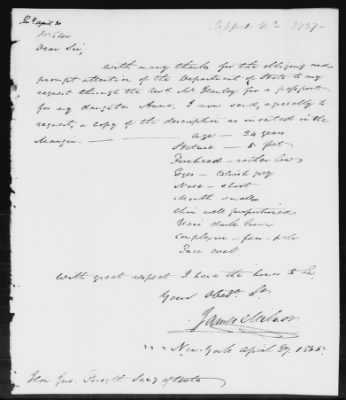 Dear Sir,
With many thanks for the obliging and
prompt attention of the Department of State to my
request through the Hon. Mr. for a passport
for my daughter Anna, I now send, agreeably to
request, a copy of the description as inserted in the
Margin.
age — 24 years
Stature — 5 feet
Forehead — rather low
Eyes — blueish grey
Nose — short
Mouth small
Chin well proportioned
Hair dark brown
Complexion — fair - pale
Face oval
With great respect I have the honor to be
Your Obedt. St.
James Milnor
New York April 29. 1835.
Hon Jno. Forsyth Secy of State